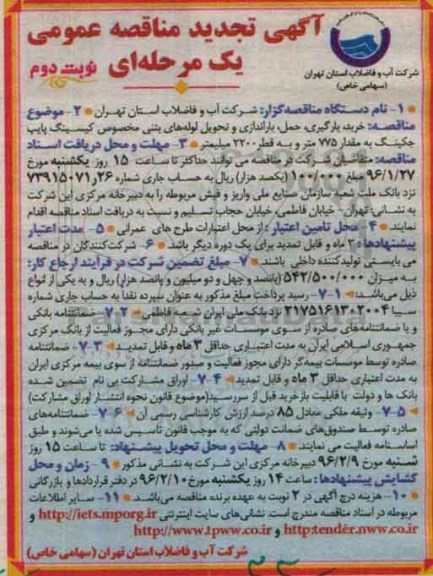 آگهی تجدید مناقصه عمومی
یک مرحله‌ای نوبت دوم
شرکت آب و فاضلاب استان تهران
(سهامی خاص)
۱- نام دستگاه مناقصه‌گزار: شرکت آب و فاضلاب استان تهران ۲- موضوع
مناقصه: خرید، بارگیری، حمل، باراندازی و تحویل لوله‌های بتنی مخصوص کیسینگ پایپ
جکینگ به مقدار ۷۷۵ متر و به قطر ۲۲۰۰ میلیمتر ۳- مهلت و محل دریافت اسناد
مناقصه: متقاضیان شرکت در مناقصه می توانند حداکثر تا ساعت ۱۵ روز یکشنبه مورخ
۹۶/۱/۲۷ مبلغ ۱۰۰/۰۰۰ (یکصد هزار) ریال به حساب جاری شماره ۲۶ و ۷۳۹۱۵۰۷۱
نزد بانک ملت شعبه سازمان صنایع ملی واریز و فیش مربوطه را به دبیرخانه مرکزی این شرکت
به نشانی: تهران - خیابان فاطمی، خیابان حجاب تسلیم و نسبت به دریافت اسناد مناقصه اقدام
نمایند. ۴- محل تامین اعتبار: از محل اعتبارات طرح های عمرانی ۵- مدت اعتبار
پیشنهادها: ۳ ماه و قابل تمدید برای یک دوره دیگر باشد. ۶- شرکت‌کنندگان در مناقصه
می بایستی تولیدکننده داخلی باشند. ۷- مبلغ تضمین شرکت در فرآیند ارجاع کار:
به میزان ۵۴۲/۵۰۰/۰۰۰ (پانصد و چهل و دو میلیون و پانصد هزار) ریال و به یکی از انواع
ذیل می‌باشد: ۷-۱- رسید پرداخت مبلغ مذکور به عنوان سپرده نقدا به حساب جاری شماره
سیبا ۲۱۷۵۱۶۱۳۰۲۰۰۴ نزد بانک ملی ایران شعبه فاطمی ۷-۲- ضمانتنامه بانکی
و یا ضمانتنامه‌های صادره از سوی موسسات غیر بانکی دارای مجوز فعالیت از بانک مرکزی
جمهوری اسلامی ایران به مدت اعتباری حداقل ۳ ماه و قابل تمدید ۷-۳- ضمانتنامه
صادره توسط موسسات بیمه‌گر دارای مجوز فعالیت و صدور ضمانتنامه از سوی بیمه مرکزی ایران
به مدت اعتباری حداقل ۳ ماه و قابل تمدید ۷-۴- اوراق مشارکت بی نام تضمین شده
بانک ها و دولت با قابلیت بازخرید قبل از سررسید (موضوع قانون نحوه انتشار اوراق مشارکت)
۷-۵- وثیقه ملکی معادل ۸۵ درصد ارزش کارشناسی رسمی آن ۷-۶- ضمانتنامه‌های
صادره توسط صندوق‌های ضمانت دولتی که به موجب قانون تاسیس شده یا می‌شوند و طبق
اساسنامه فعالیت می نمایند. ۸- مهلت و محل تحویل پیشنهاد: تا ساعت ۱۵ روز
شنبه مورخ ۹۶/۲/۹ دبیرخانه مرکزی این شرکت به نشانی مذکور ۹- زمان و محل
گشایش پیشنهادها: ساعت ۱۴ روز یکشنبه مورخ ۹۶/۲/۱۰ در دفتر قراردادها و بازرگانی
۱۰- هزینه درج آگهی در ۲ نوبت به عهده برنده مناقصه می‌باشد. ۱۱- سایر اطلاعات
مربوطه در اسناد مناقصه مندرج است. نشانی‌های سایت اینترنتی http://iets.mporg.ir و
http:tender.nww.co.ir و http://www.tpww.co.ir
شرکت آب و فاضلاب استان تهران (سهامی خاص)